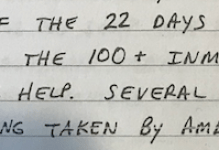 F THE 22 DAYS
THE 100+ INM
HELP. SEVERAL
NG TAKEN BY AMB